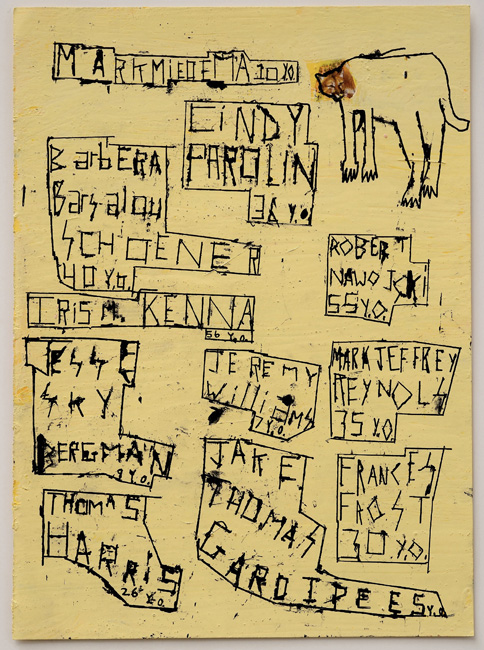 MARK MIEDEMA 10 Y.O.
CiNDY
PAROLIN
36 Y.O.
BarbERA
Barsalou
SCHOENER
40 Y.O.
ROBERT
NAWOJCKI
55 Y.O.
IRIS M. KENNA
56 Y.O.
JESSE
SKY
BERGMAN
9 Y.O.
JEREMY
Williams
7 Y.O.
MARK JEFFREY
REYNOLS
35 Y.O.
THOMAS
HARRiS
26 Y.O.
JAKE
THOMAS
GARDIPEE 5 Y.O.
FRANCES
FROST
30 Y.O.